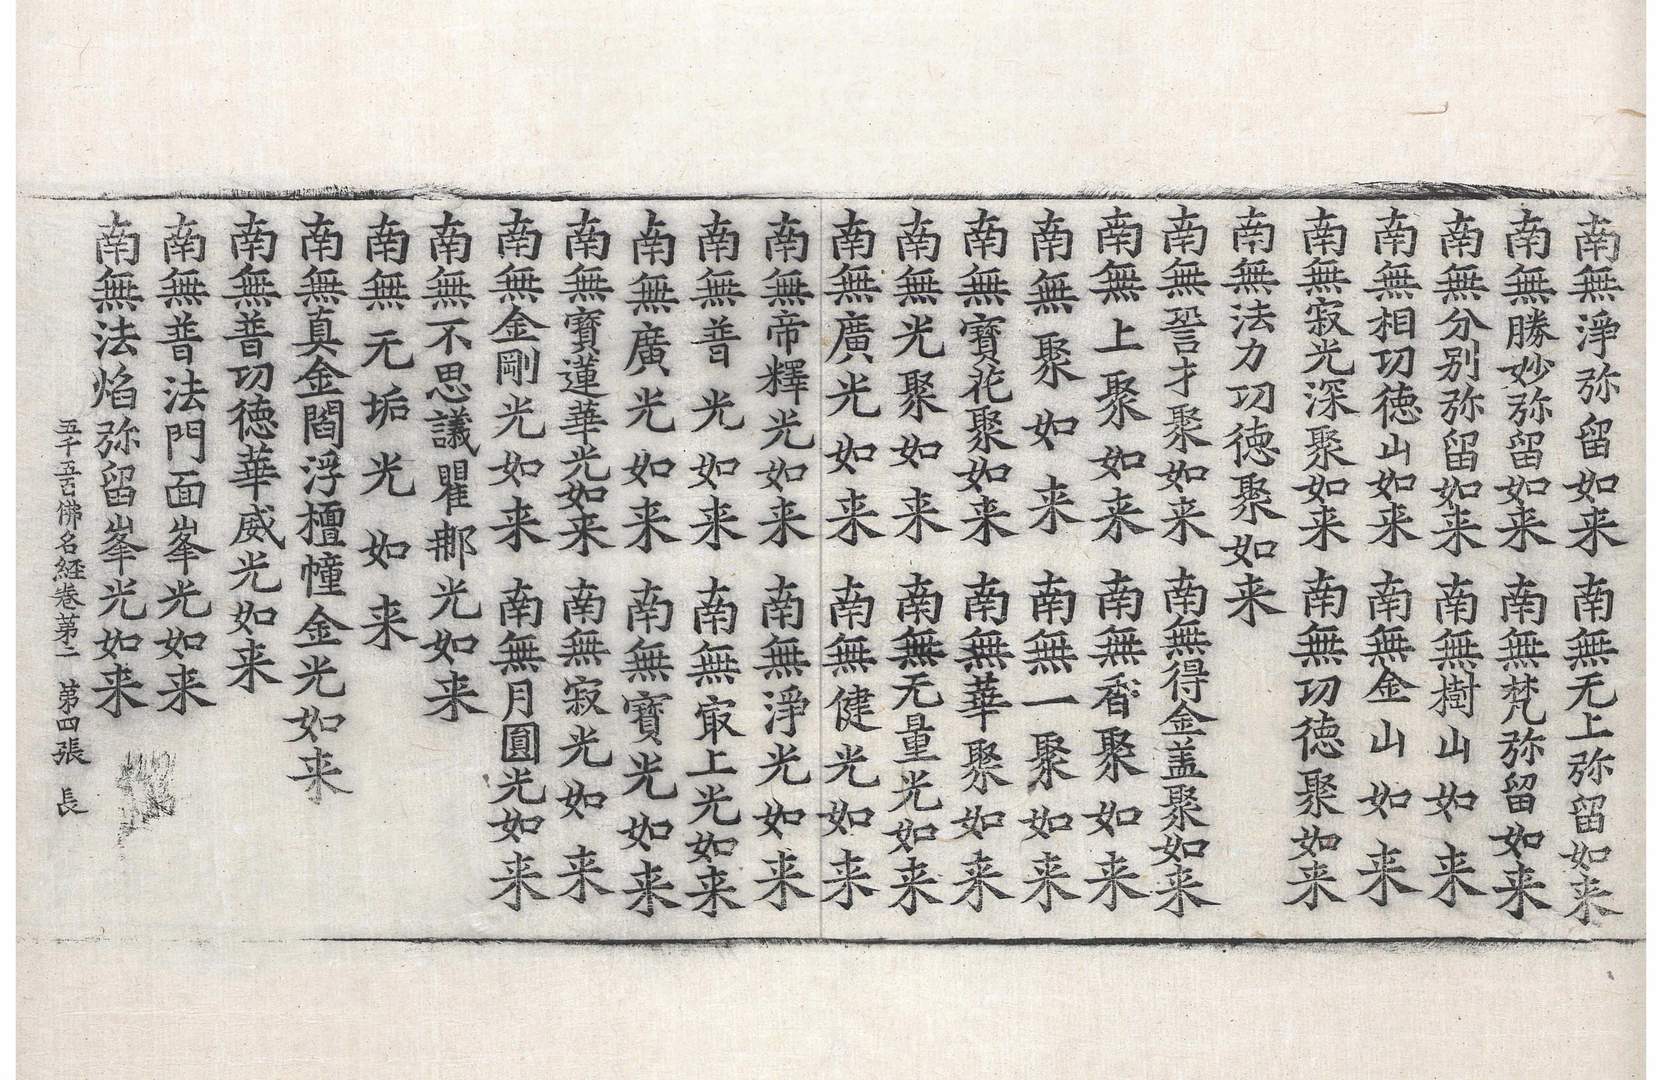 南無淨弥留如来 南無无上弥留如来
南無勝妙弥留如来 南無梵弥留如来
南無分別弥留如来 南無樹山如来
南無相功徳山如来 南無金山如来
南無寂光深聚如来 南無功徳聚如来
南無法力功徳聚如来
南無誓才聚如来 南無得金盖聚如来
南無上聚如来 南無香聚如来
南無聚如来 南無一聚如来
南無寶花聚如来 南無華聚如来
南無光聚如来 南無无量光如来
南無廣光如来 南無健光如来
南無帝釋光如来 南無淨光如来
南無普光如来 南無冣上光如来
南無廣光如来 南無寶光如来
南無寶蓮華光如来 南無寂光如来
南無金剛光如来 南無月圓光如来
南無不思議瞿那光如来
南無无垢光如来
南無真金閻浮檀幢金光如来
南無普功徳華威光如来
南無普法門面峯光如来
南無法焰弥留峯光如来
五千五百佛名経卷第二 第四張 長